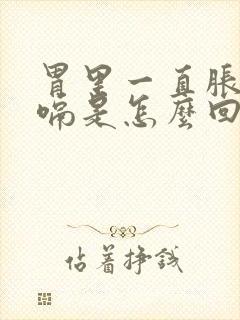 胃里一直胀
嗝是怎么回
估着挣钱